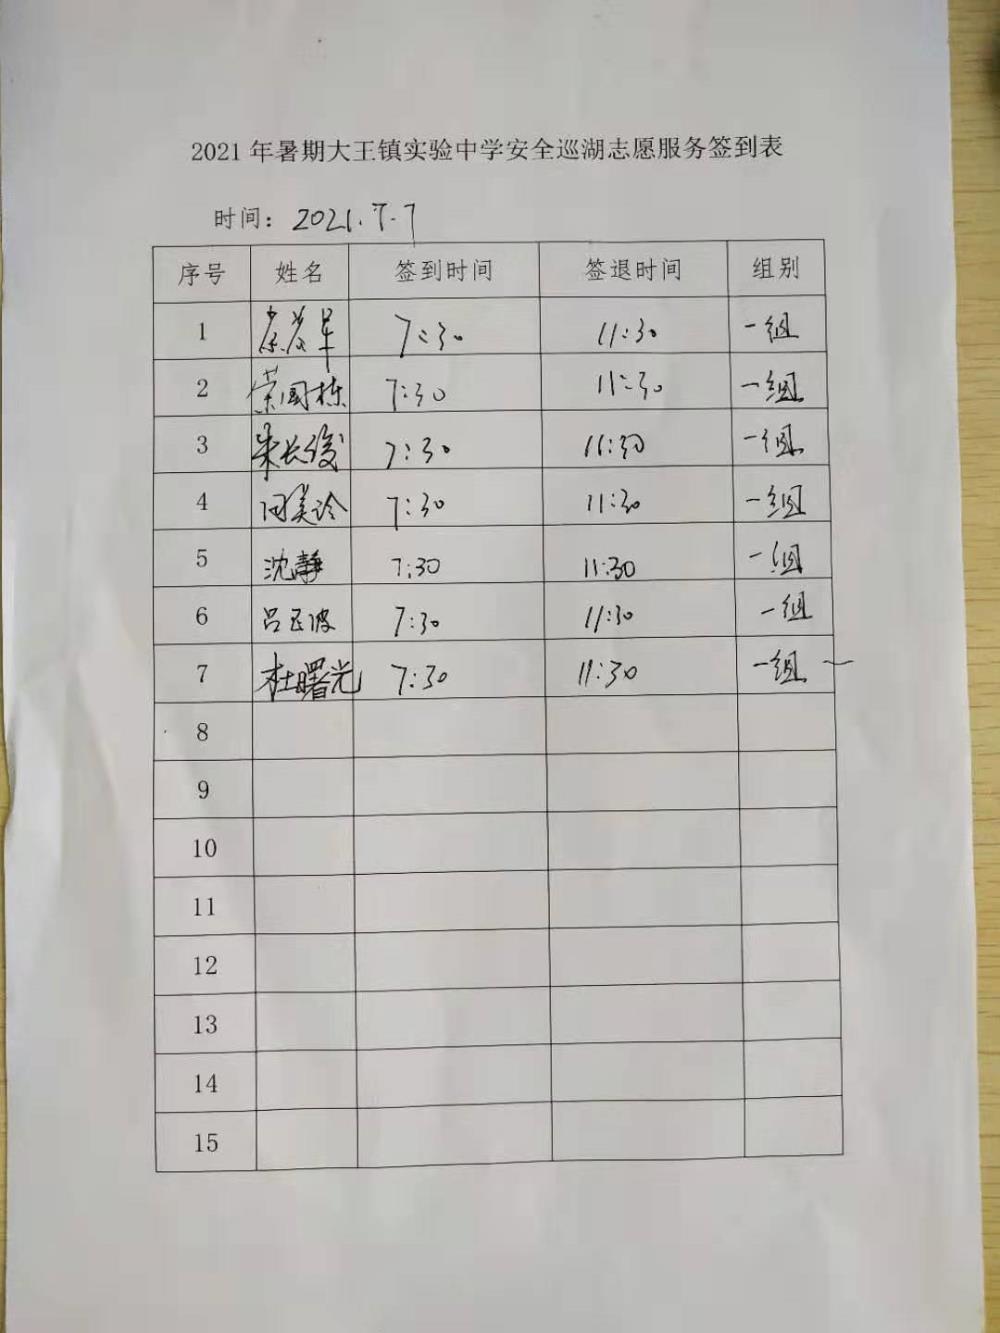 2021年暑期大王镇实验中学安全巡湖志愿服务签到表
时间：2021.7.7
序号 姓名 签到时间 签退时间 组别
1 7:30 11:30 一组
2 荣国栋 7:30 11:30 一组
3 宋长俊 7:30 11:30 一组
4 闫美玲 7:30 11:30 一组
5 沈静 7:30 11:30 一组
6 吕正波 7:30 11:30 一组
7 杜曙光 7:30 11:30 一组
8
9
10
11
12
13
14
15